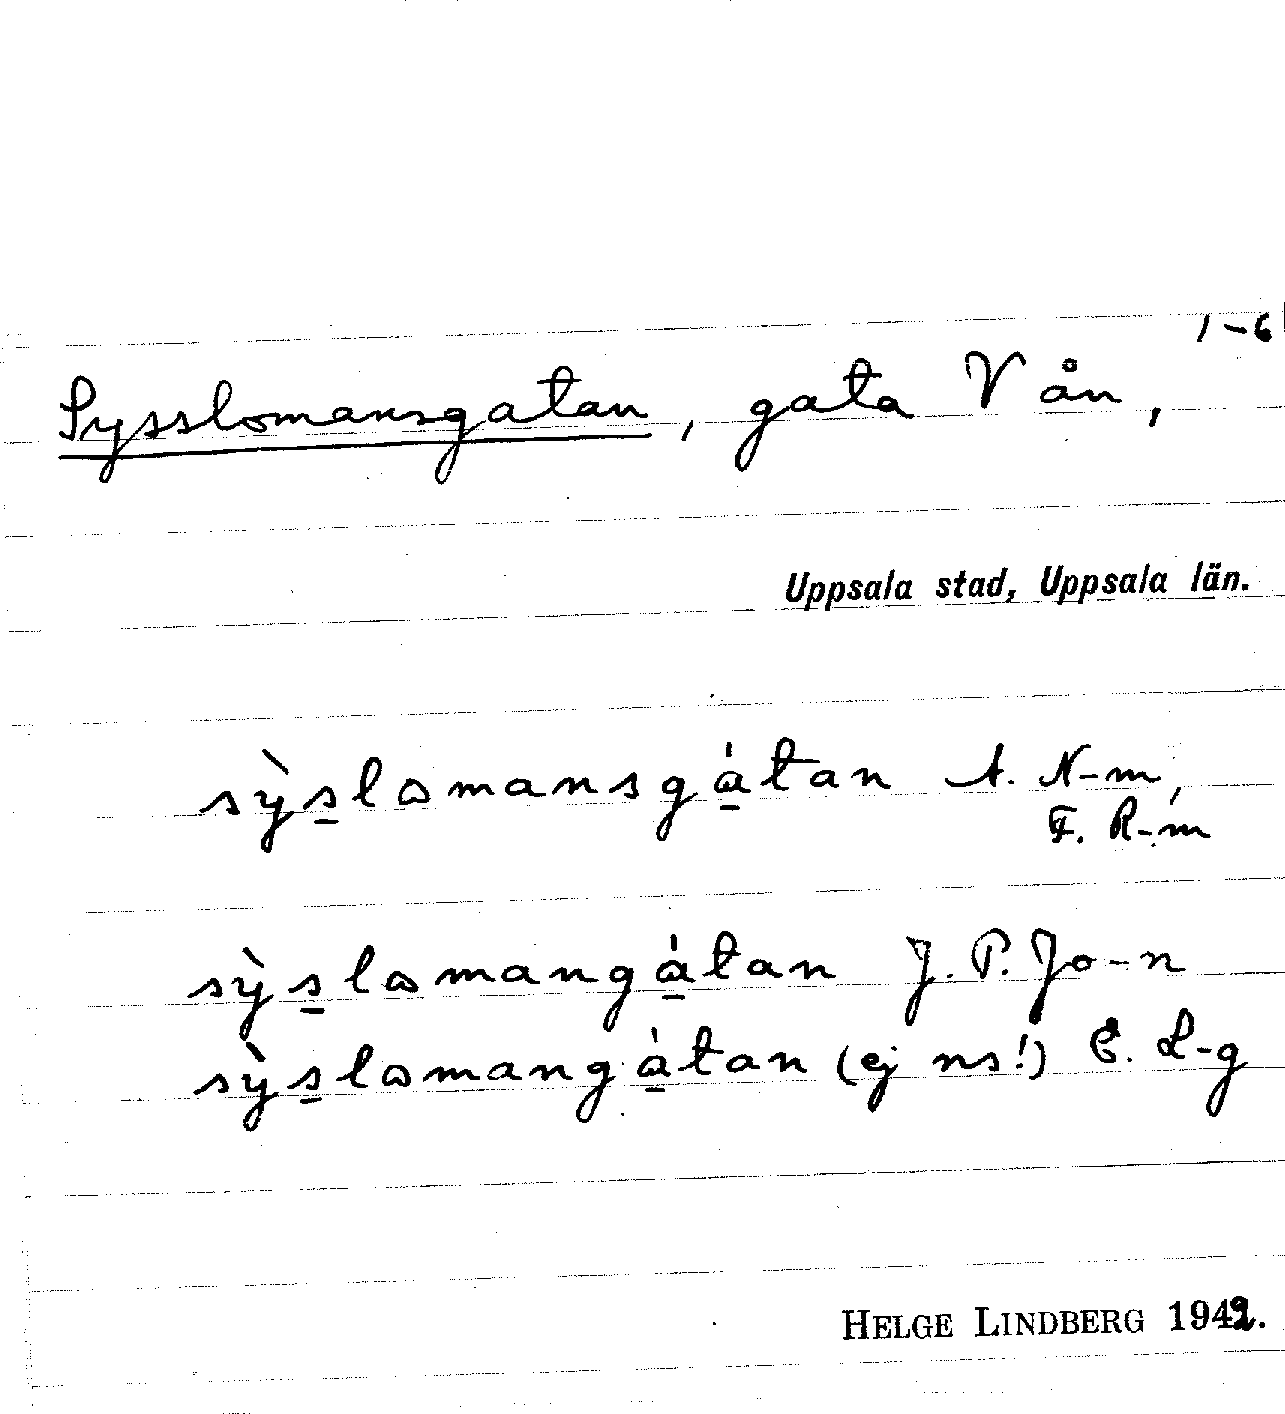 1-6
Sysslomansgatan, gata V ån,
Uppsala stad, Uppsala län.
sỳs̲lɷmansgà̲tan A. N-m,
F. R-m
sỳs̲lɷmangà̲tan J. P. Jo-n
sỳs̲lɷmangà̲tan (ej ns!) E. L-g
HELGE LINDBERG 1942.